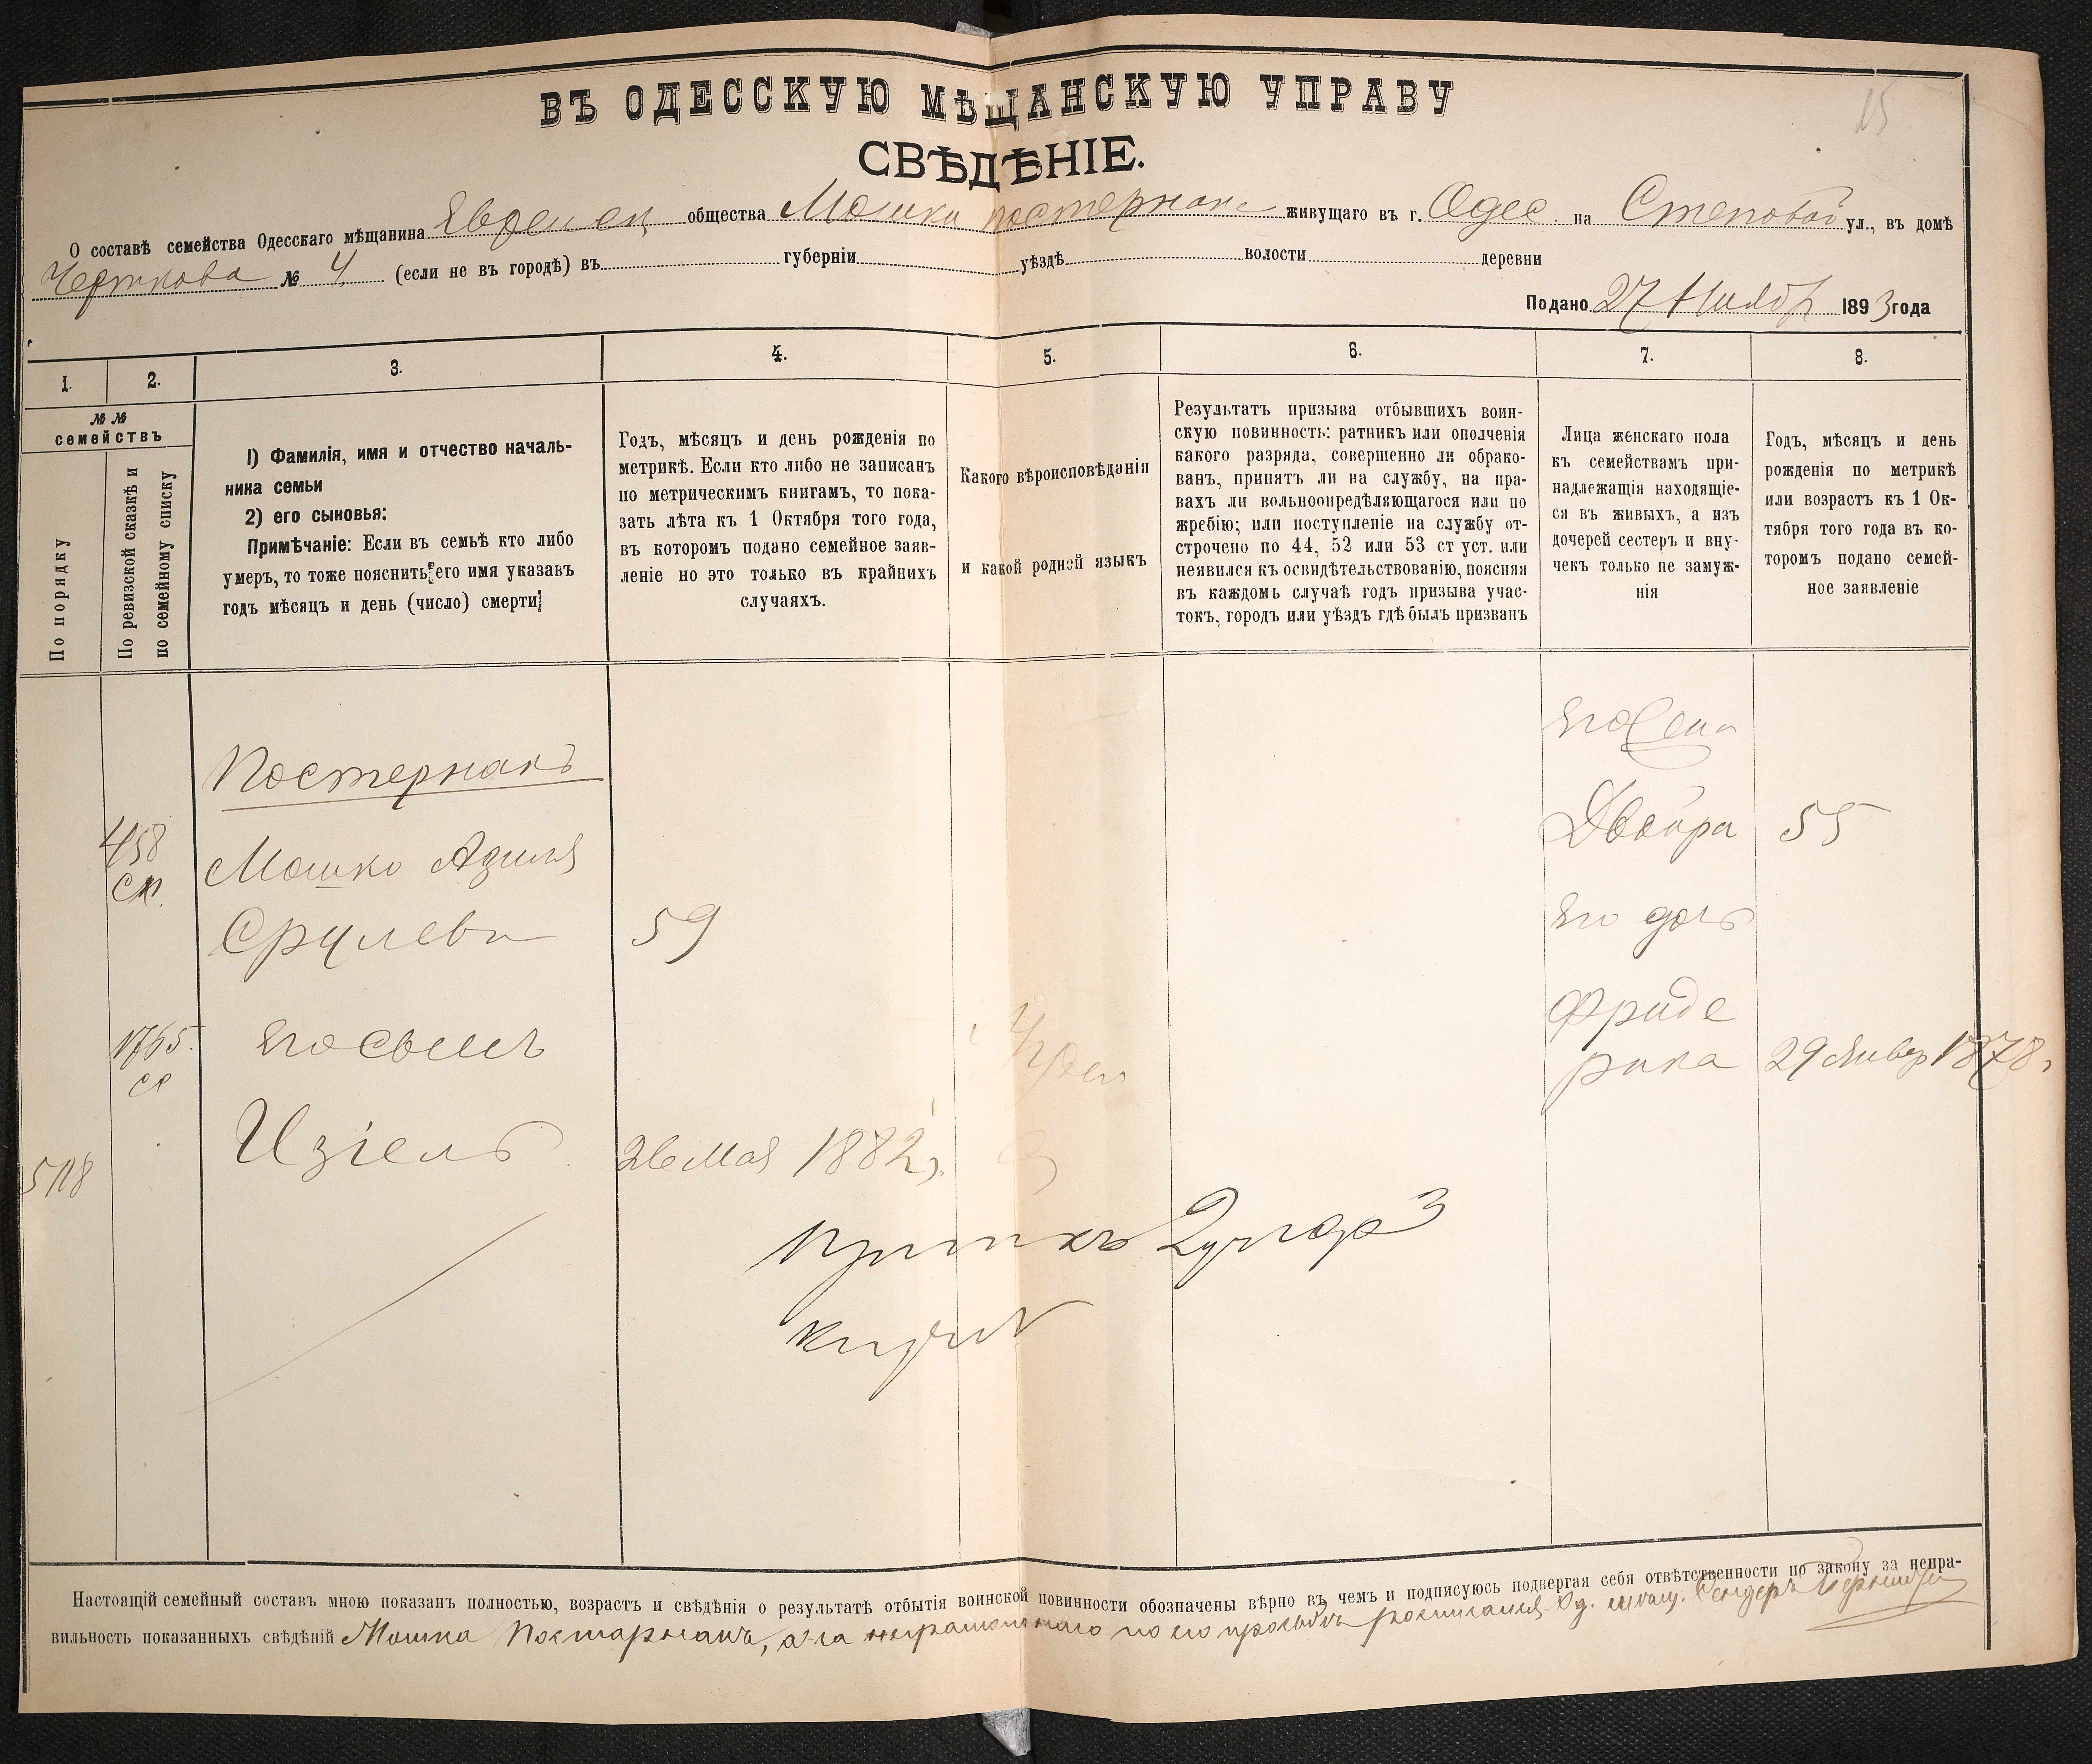 15
ВЪ ОДЕССКУЮ МѢЩАНСКУЮ УПРАВУ
СВѢДѢНІЕ.
О составѣ семейства Одесскаго мѣщанина общества Мошки Постернакъ живущаго въ г. Одес. на Степовой ул., въ домѣ
Черткова № 4 (если не въ городѣ) въ губерніи уѣздѣ волости деревни
Подано 27 1893 года
1. 2. 3. 4. 5. 6. 7. 8.
№ №
семействъ
По порядку
По ревизской сказкѣ и
по семейному списку
1) Фамилія, имя и отчество началь-
ника семьи
2) его сыновья:
Примѣчаніе: Если въ семьѣ кто либо
умеръ, то тоже пояснить его имя указавъ
годъ мѣсяцъ и день (число) смерти
Годъ, мѣсяцъ и день рожденія по
метрикѣ. Если кто либо не записанъ
по метрическимъ книгамъ, то пока-
зать лѣта къ 1 Октября того года,
въ которомъ подано семейное заяв-
леніе но это только въ крайнихъ
случаяхъ.
Какого вѣроисповѣданія
и какой родной языкъ
Результатъ призыва отбывшихъ воин-
скую повинность: ратникъ или ополченія
какого разряда, совершенно ли обрако-
ванъ, принятъ ли на службу, на пра-
вахъ ли вольноопредѣляющагося или по
жребію; или поступленіе на службу от-
строчено по 44, 52 или 53 ст уст. или
неявился къ освидѣтельствованію, поясняя
въ каждомъ случаѣ годъ призыва учас-
токъ, городъ или уѣздъ гдѣ былъ призванъ
Лица женскаго пола
къ семействамъ при-
надлежащія находящіе-
ся въ живыхъ, а изъ
дочерей сестеръ и вну-
чекъ только не замуж-
нія
Годъ, мѣсяцъ и день
рожденія по метрикѣ
или возрастъ къ 1 Ок-
тября того года въ ко-
торомъ подано семей-
ное заявленіе
Его жена
Постернакъ
Двойра 55
458
Мошко
Срулевъ 59
Его дочь
Фриде
1765 Его сынъ
рика 29 Январ 1878 г
Изіель 26 Мая 1882 г.
5118
Настоящій семейный составъ мною показанъ полностью, возрастъ и свѣдѣнія о результатѣ отбытія воинской повинности обозначены вѣрно въ чемъ и подписуюсь подвергая себя отвѣтственности по закону за непра-
вильность показанныхъ свѣдѣній Мошка Постарнакъ, а за неграмотнаго по его просьбѣ росписался Од. мѣщ.